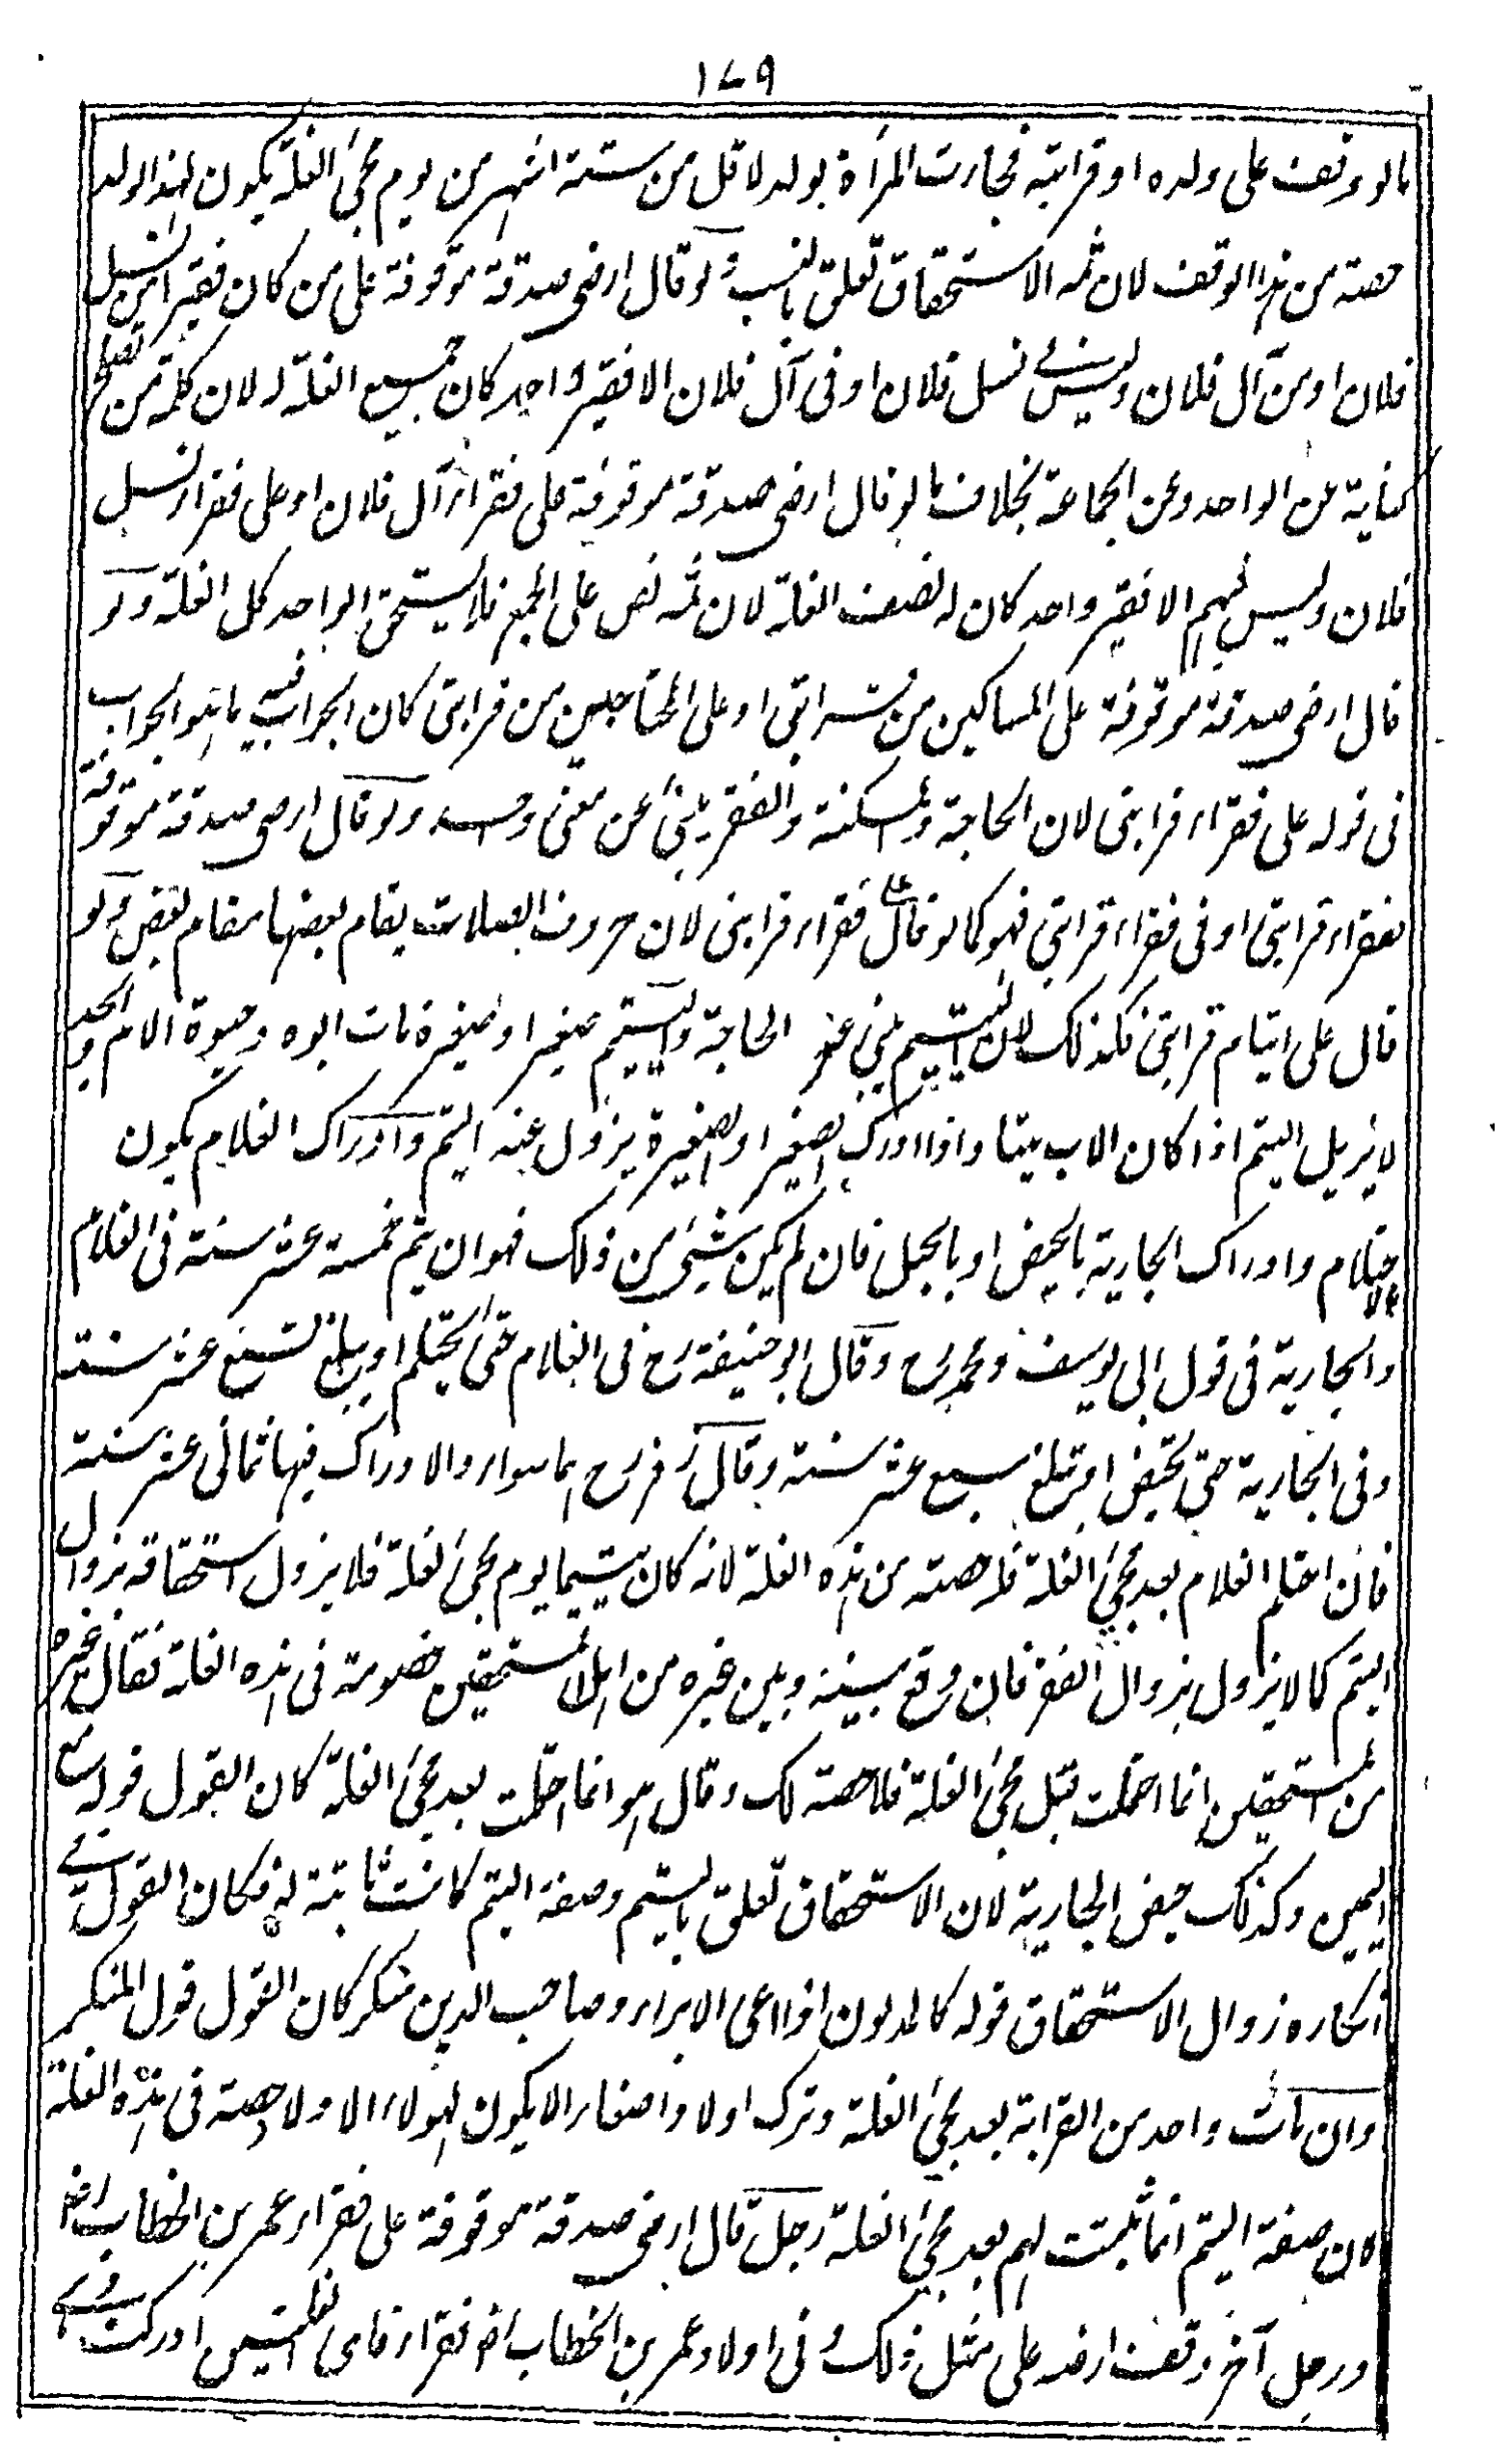 ١٧٩
ما لو وقف على ولده او قرابته فجاءت المرأة بولد لاقل من ستة اشهر من يوم مجئ الغلة يكون لهذا الولد
حصة من هذا الوقف لان ثمه الاستحقاق تعلق بالنسب ولو قال ارضى صدقة موقوفة على من كان فقيرا من نسل
فلان او من آل فلان وليس في نسل فلان او فى آل فلان الا فقير واحد كان جميع الغلة له لان كلمة من تصلح
كناية عن الواحد وعن الجماعة بخلاف ما لو قال ارضى صدقة موقوفة على فقراء آل فلان او على فقراء نسل
فلان وليس فيهم الا فقير واحد كان له نصف الغلة لان ثمه نص على الجمع فلا يستحق الواحد كل الغلة ولو
قال ارضى صدقة موقوفة على المساكين من قرابتى او على المحتاجين من قرابتى كان الجواب فيه ما هو الجواب
فى قوله على فقراء قرابتى لان الحاجة والمسكنة والفقر ينبئ عن معنى واحد ولو قال ارضى صدقة موقوفة
لفقراء قرابتى او فى فقراء قرابتى فهو كما لو قال على فقراء قرابتى لان حروف الصلات يقام بعضها مقام بعض ولو
قال على ايتام قرابتى فكذلك لان اليتيم ينبئ عن الحاجة واليتيم صغير او صغيرة مات ابوه وحيوة الام والجد
لا يزيل اليتم اذا كان الاب ميتا واذا ادرك الصغير او الصغيرة يزول عنه اليتم وادراك الغلام يكون
بالاحتلام وادراك الجارية بالحيض او بالحبل فان لم يكن شئ من ذلك فهو ان يتم خمسة عشر سنة فى الغلام
والجارية فى قول ابى يوسف ومحمد رح وقال ابو حنيفة رح فى الغلام حتى يحتلم او يبلغ تسع عشر سنة
وفى الجارية حتى تحيض او تبلغ سبع عشر سنة وقال زفر رح هما سواء والادراك فيهما ثمانى عشر سنة
فان احتلم الغلام بعد مجئ الغلة فله حصته من هذه الغلة لانه كان يتيما يوم مجئ الغلة فلا يزول استحقاقه بزوال
اليتم كما لا يزول بزوال الفقر فان وقع بينه وبين غيره من اهل المستحقين خصومة فى هذه الغلة فقال غيره
من المستحقين انما احتلمت قبل مجئ الغلة فلا حصة لك وقال هو انما احتلمت بعد مجئ الغلة كان القول قوله مع
اليمين وكذلك حيض الجارية لان الاستحقاق تعلق باليتم وصفة اليتم كانت ثابتة له فكان القول في
انكاره زوال الاستحقاق قوله كالمديون اذا ادعى الابراء وصاحب الدين منكر كان القول قول المنكر
وان مات واحد من القرابة بعد مجئ الغلة وترك اولادا صغارا لا يكون لهولاء الاولاد حصة فى هذه الغلة
لان صفة اليتم انما ثبتت لهم بعد مجئ الغلة رجل قال ارضى صدقة موقوفة على فقراء عمر بن الخطاب رض
ورجل آخر وقف ارضه على مثل ذلك وفى اولاد عمر بن الخطاب رض فقراء فاى الغلتين ادركت في